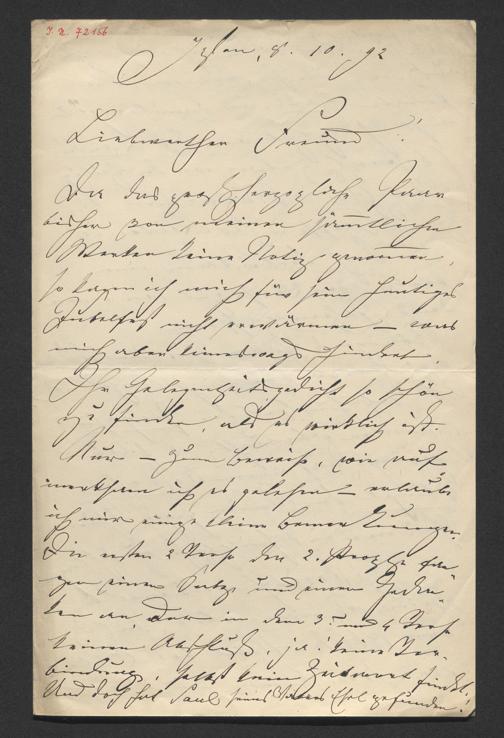 I. N. 72166
8. 10. 92
Liebwerther Freund!
Da das großherzogliche Paar
bisher von meinen sämmtlichen
Werken keine Notiz genommen,
so kann ich mich für sein heutiges
Jubelfest nicht erwärmen – was
mich aber keineswegs hindert,
Ihr Gelegenheitsgedicht so schön
zu finden, als es wirklich ist.
Nur – zum Beweise, wie auf
merksam ich es gelesen – erlaube
ich mir einige kleine Bemerkungen.
Die ersten 2 Verse der 2. Strophe fan
gen einen Satz und einen Gedan
ken an, der in dem 3. und 4 Verse
keinen Abschluß, ja! keine Ver
bindung, selbst kein Zeitwort findet.
Und doch hat Saul seines Vaters Esel gefunden!